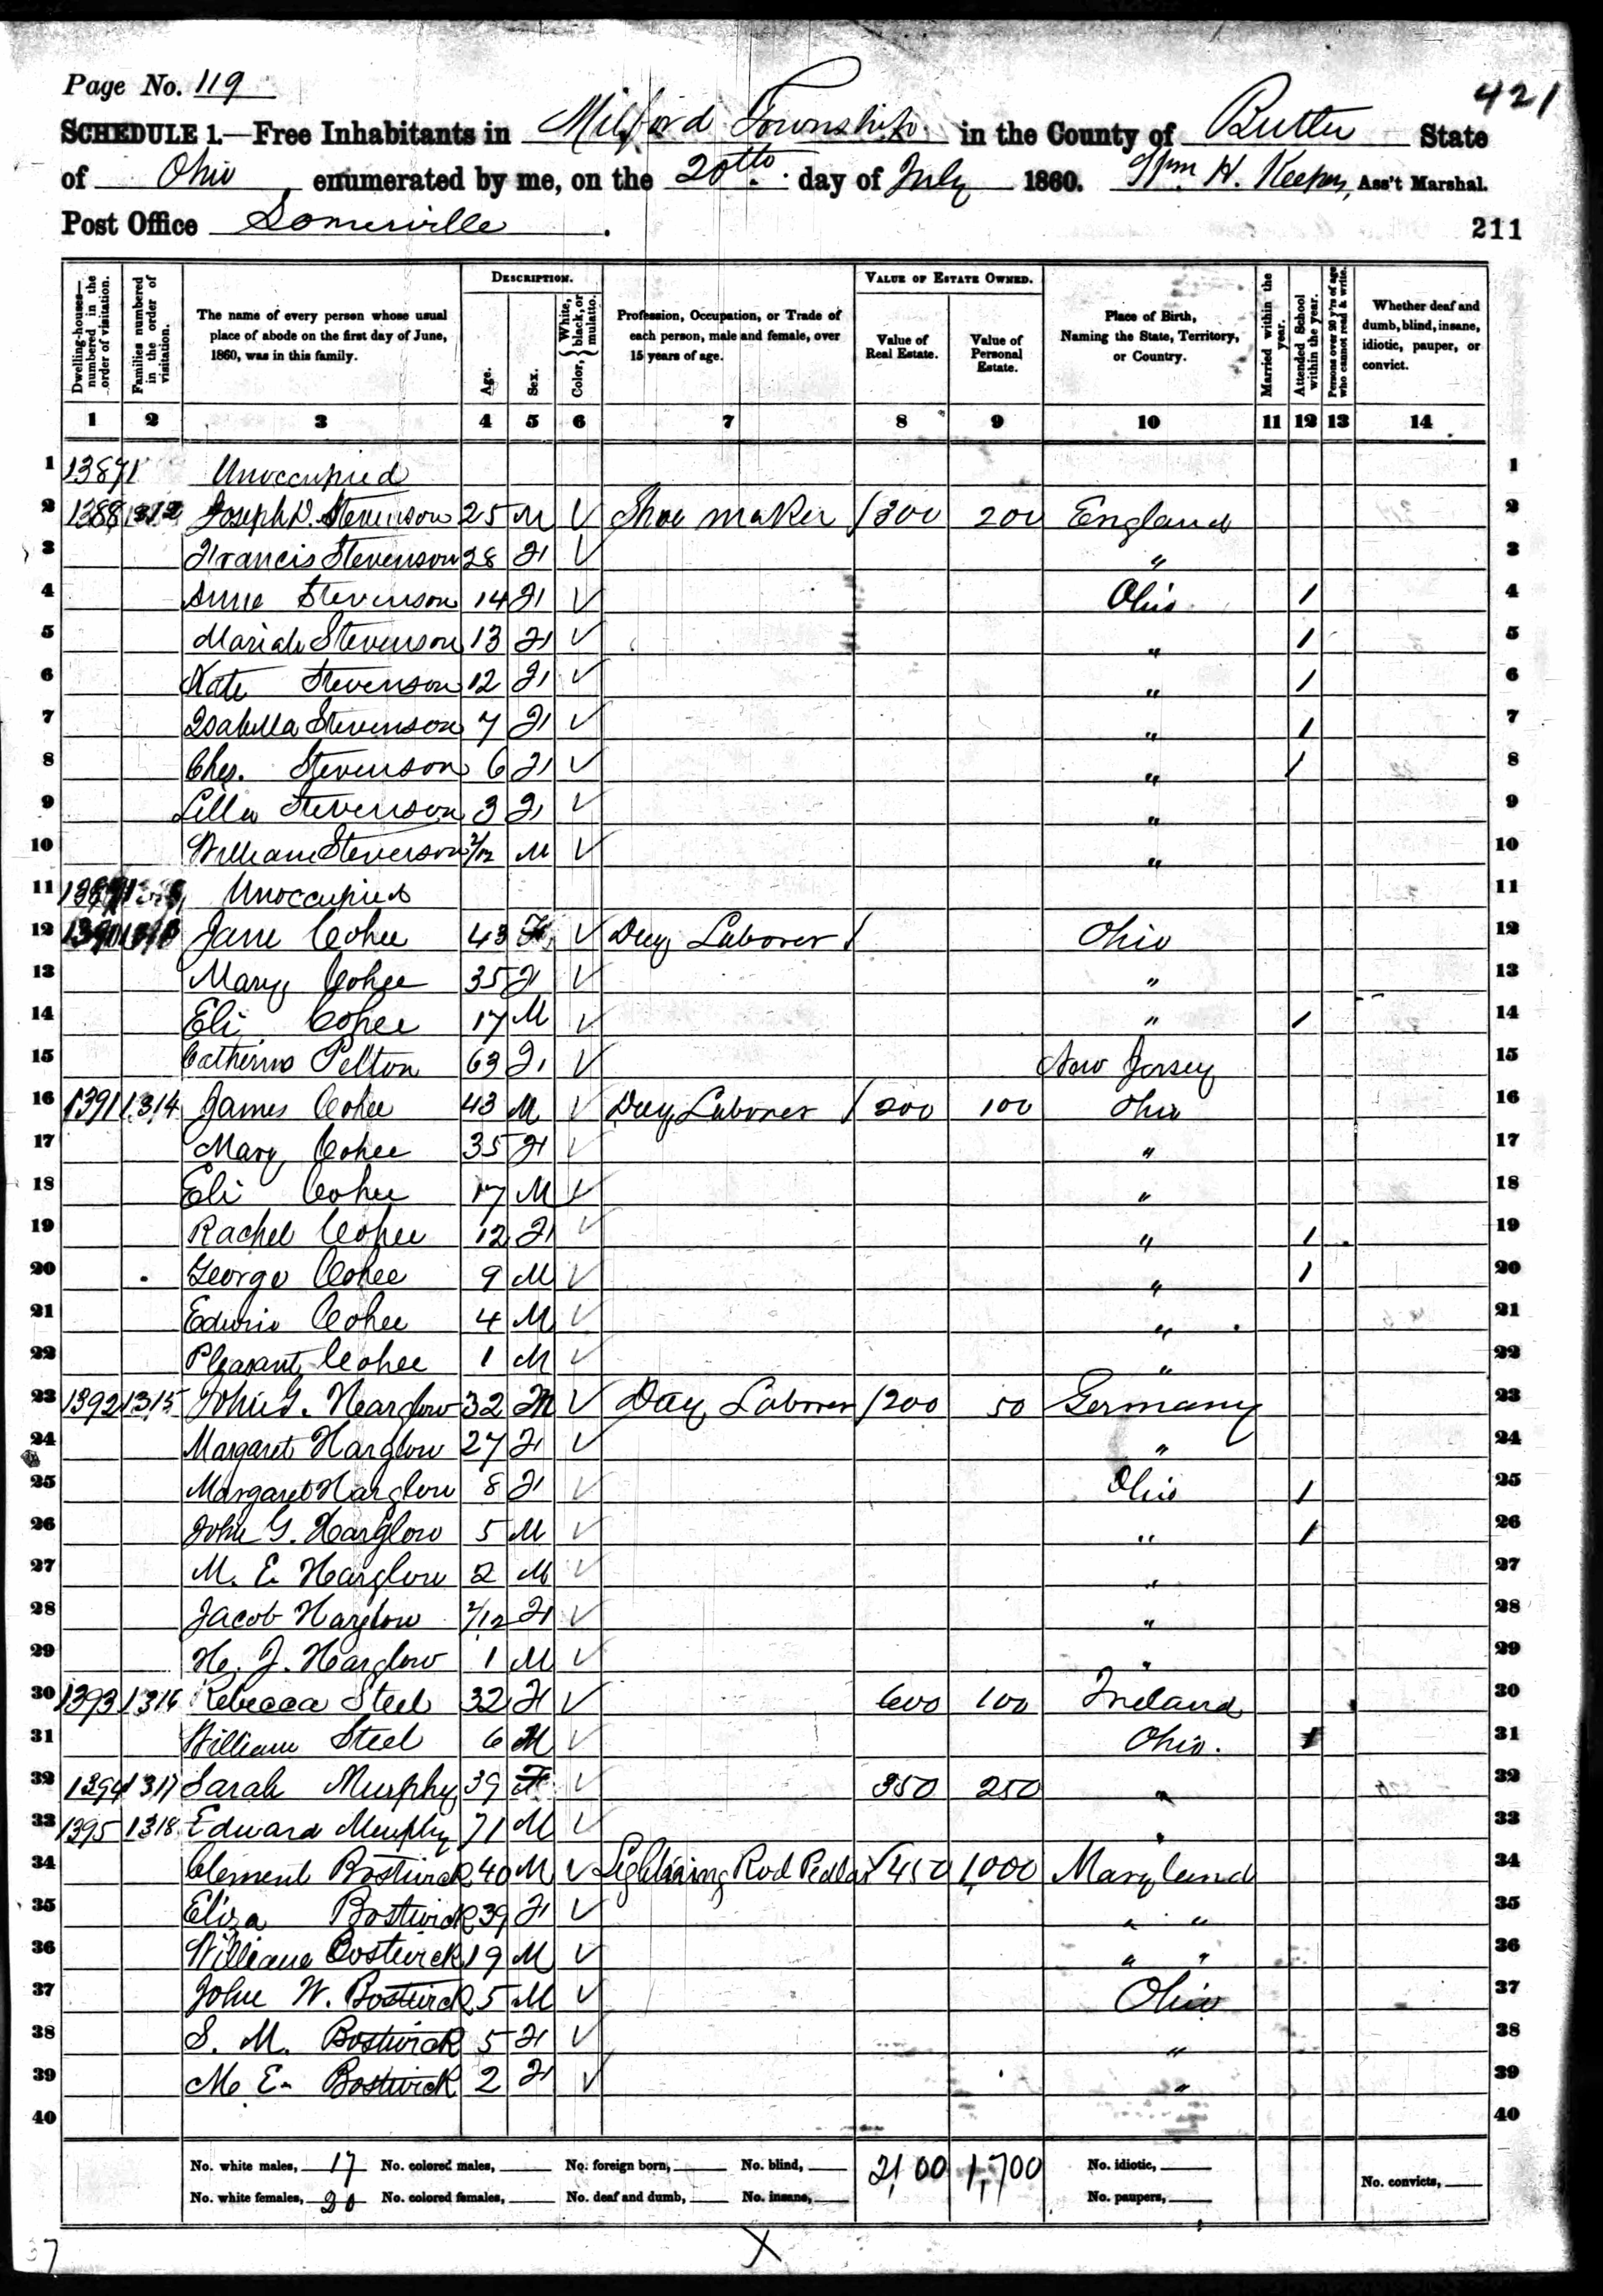 Page No. 119
421
SCHEDULE 1.—Free Inhabitants in Milford Township in the County of Butler State
of Ohio enumerated by me, on the 20th day of July 1860. Wm. H. Keeper, Ass't Marshal.
Post Office Somerville.
211
DESCRIPTION. VALUE OF ESTATE OWNED.
Dwelling-houses—numbered in the order of visitation.
Families numbered in the order of visitation.
The name of every person whose usual place of abode on the first day of June, 1860, was in this family.
Age.
Sex.
Color, White, black, or mulatto.
Profession, Occupation, or Trade of each person, male and female, over 15 years of age.
Value of Real Estate.
Value of Personal Estate.
Place of Birth, Naming the State, Territory, or Country.
Married within the year.
Attended School within the year.
Persons over 20 y'rs of age who cannot read & write.
Whether deaf and dumb, blind, insane, idiotic, pauper, or convict.
1 2 3 4 5 6 7 8 9 10 11 12 13 14
1 1387 Unoccupied 1
2 1388 1312 Joseph D. Stevenson 25 M Shoe maker 300 200 England 2
3 Francis Stevenson 28 F " 3
4 Anne Stevenson 14 F Ohio / 4
5 Mariah Stevenson 13 F " / 5
6 Kate Stevenson 12 F " / 6
7 Isabella Stevenson 7 F " / 7
8 Chs. Stevenson 6 F " / 8
9 Lilla Stevenson 3 F " 9
10 William Stevenson 2/12 M " 10
11 1389 Unoccupied 11
12 1390 1313 Jane Cohee 43 F Day Laborer Ohio 12
13 Mary Cohee 35 F " 13
14 Eli Cohee 17 M " / 14
15 Catherine Pelton 63 F New Jersey 15
16 1391 1314 James Cohee 43 M Day Laborer 200 100 Ohio 16
17 Mary Cohee 35 F " 17
18 Eli Cohee 17 M " 18
19 Rachel Cohee 12 F " / 19
20 George Cohee 9 M " / 20
21 Edwin Cohee 4 M " 21
22 Pleasant Cohee 1 M " 22
23 1392 1315 John G. Hearglow 32 M Day Laborer 200 50 Germany 23
24 Margaret Harglow 27 F " 24
25 Margaret Harglow 8 F Ohio / 25
26 John G. Harglow 5 M " / 26
27 M. E. Harglow 2 M " 27
28 Jacob Harglow 2/12 F " 28
29 H. J. Harglow 1 M " 29
30 1393 1316 Rebecca Steel 32 F 600 100 Ireland 30
31 William Steel 6 M Ohio. / 31
32 1394 1317 Sarah Murphy 39 F 350 250 " 32
33 1395 1318 Edward Murphy 71 M " 33
34 Clement Bostwick 40 M Lightning Rod Pedlar 450 1,000 Maryland 34
35 Eliza Bostwick 39 F " " 35
36 William Bostwick 19 M " " 36
37 John W. Bostwick 5 M Ohio 37
38 S. M. Bostwick 5 F " 38
39 M. E. Bostwick 2 F " 39
40 40
No. white males, 17 No. colored males, No. foreign born, No. blind, 2,100 1,700 No. idiotic, No. convicts,
No. white females, 20 No. colored females, No. deaf and dumb, No. insane, No. paupers,
37
X